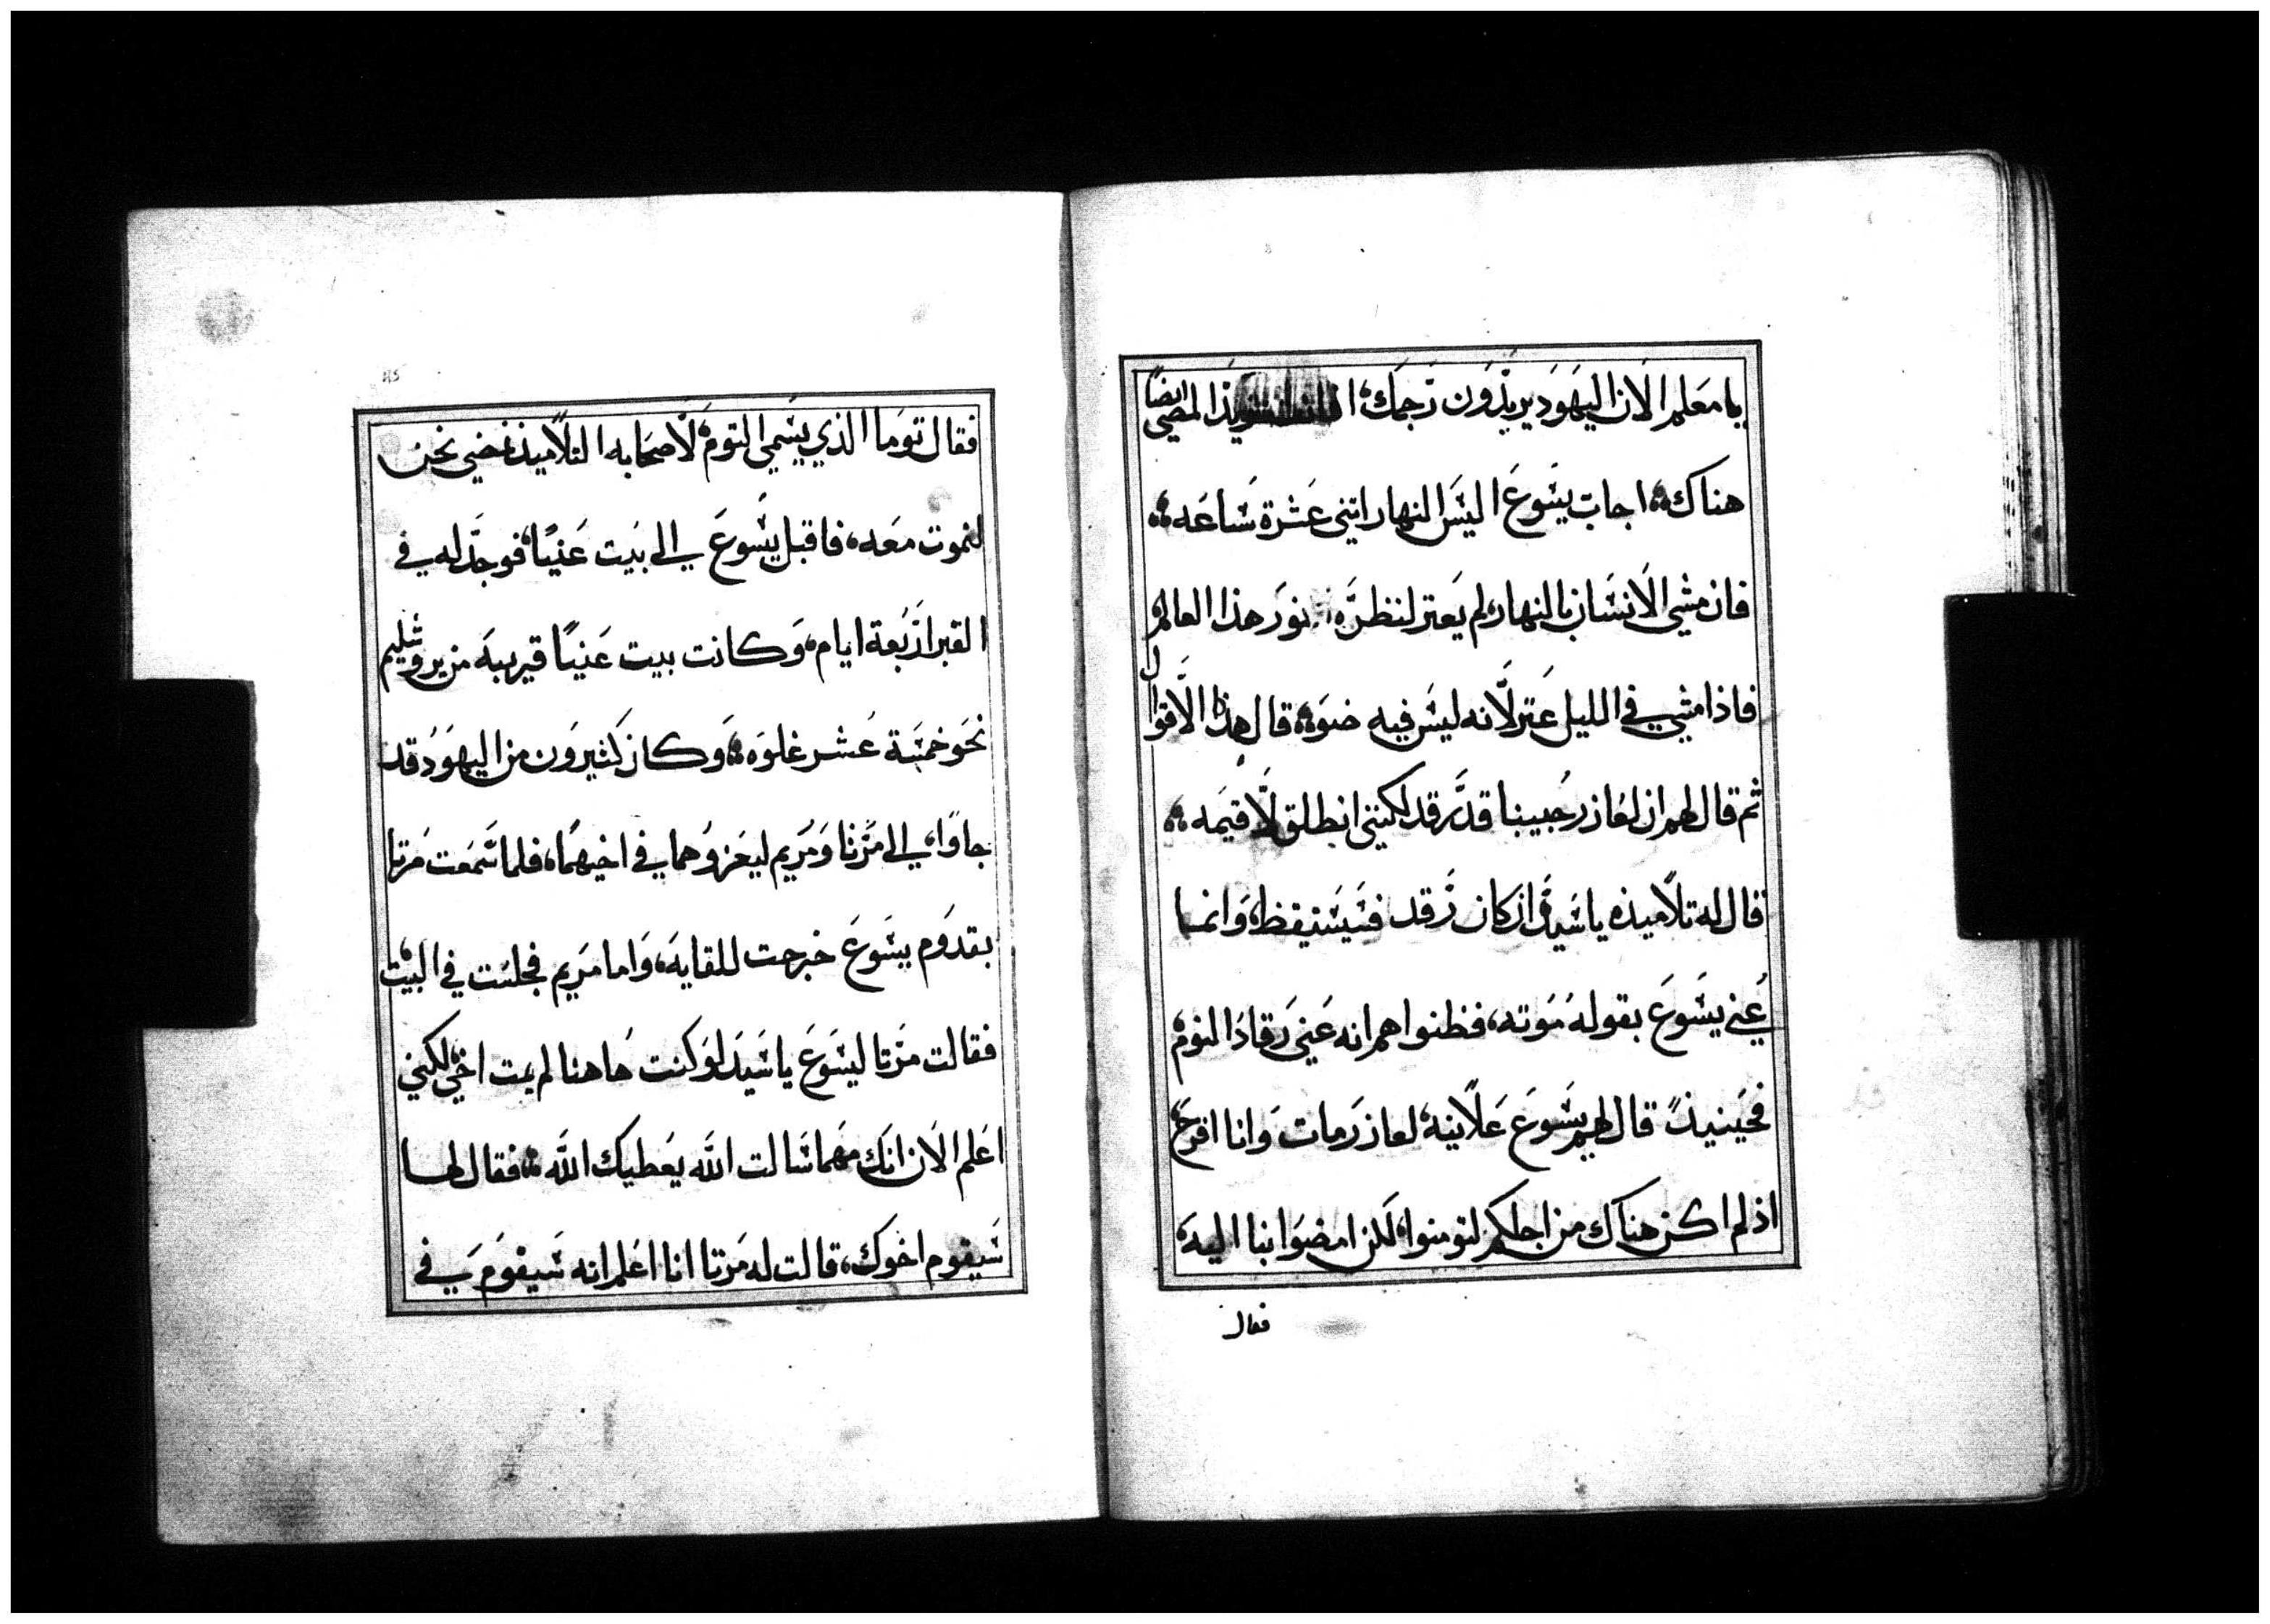 يا معلم الان اليهود يريدون رجمك، تريد المضي ايضاً
هناك، اجاب يسوع اليس النهار اتنى عشرة ساعه،
فان مشى الانسان بالنهار، لم يعتر لنظره نور هذا العالم
فاذا مشى في الليل عتر لانه ليس فيه ضوه، قال هذا الاقوال
ثم قال لهم ان لعازر حبيبنا قد رقد لكنني انطلق لاقيمه،
قال له تلاميذه يا سيد ان كان رقد فسيستيقظ، وانما
عني يسوع بقوله موته، فظنوا هم انه عنى رقاد النوم،
فحينيذ قال لهم يسوع علانية، لعازر مات وانا افرح
اذ لم اكن هناك من اجلكم لتومنوا، لكن امضوا بنا اليه،
فقال
فقال توما الذي يسمي التوم، لاصحابه التلاميذ نمضي نحن
لنموت معه، فاقبل يسوع الى بيت عنيا، فوجد له في
القبر اربعة ايام، وكانت بيت عنيا قريبه من يروشليم
نحو خمسة عشر غلوه، وكان كثيرون من اليهود قد
جاوا، الى مرتا ومريم ليعزوهما في اخيهما، فلما سمعت مرتا
بقدوم يسوع خرجت للقايه، واما مريم فجلست في البيت
فقالت مرتا ليسوع يا سيد لو كنت هاهنا لم يمت اخي، لكني
اعلم الان انك مهما سالت الله يعطيك الله، فقال لها
سيقوم اخوك، قالت له مرتا انا اعلم انه سيقوم في